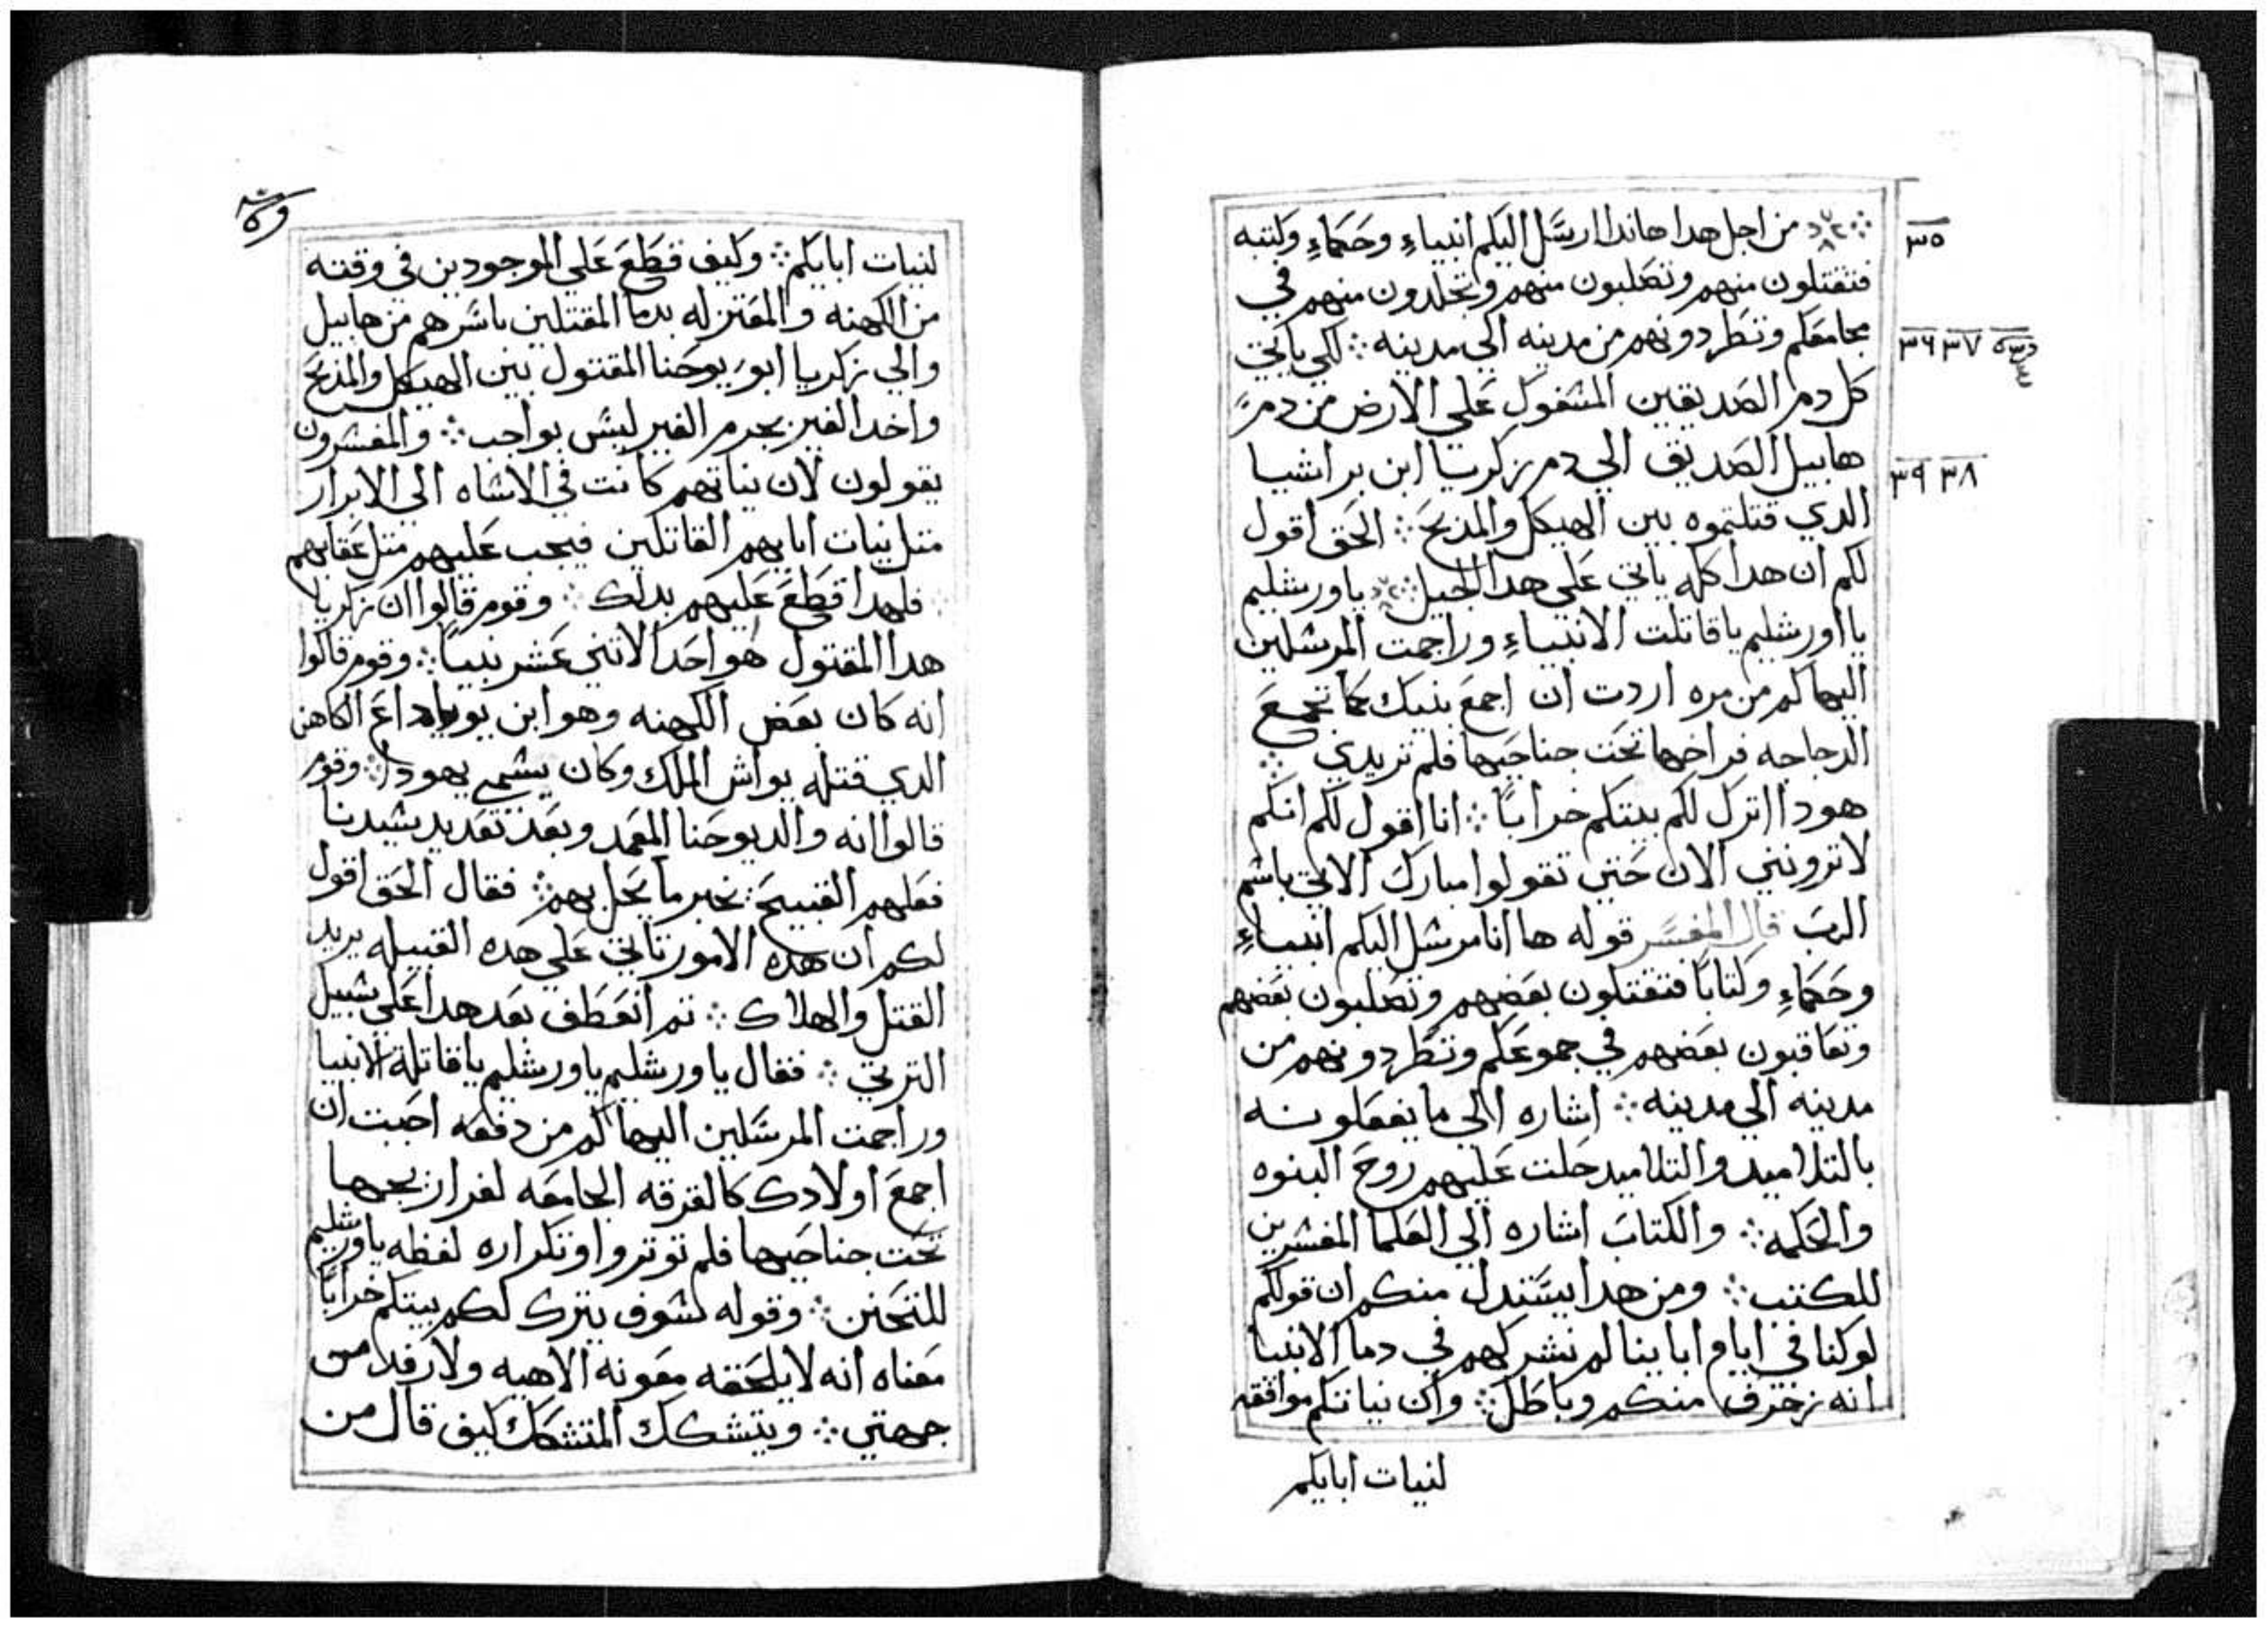 من اجل هدا هاندا ارسَّل اليكم انبياءٍ وحَكماءٍ وكتبه
٣٥
فتقتلون منهم وتصَلبون منهم وتجلدون منهم في
مجامعَكم وتطَردونهم من مدينه الي مدينه ܀ لكي ياتي
٣٦ ٣٧
كل دم الصَديقين المسَفوك عَلي الارض من دم
هابيل الصَديق الي دم زكريا ابن براشيا
٣٨ ٣٩
الدي قتلتموه بين الهيكل والمدبحَ ܀ الحَق اقول
لكم ان هدا كله ياتي عَلي هدا الجيل ܀ ياورشليم
يااورشليم ياقاتلت الانبياءٍ وراجمت المرسَلين
اليها كم من مره اردت ان اجمعَ بنيك كما تجمعَ
الدجاجه فراخها تحَت جناحَيها فلم تريدي ܀
هودا اترك لكم بيتكم خراباً ܀ انا اقول لكم انكم
لا ترونني الان حَتي تقولوا مبارك الاتي باسَم
الربَ قال المفسَّر قوله ها انا مرسَل اليكم انبياءٍ
وحَكماءٍ وكتابًا فتقتلون بعَضهم وتصَلبون بعَضهم
وتعَاقبون بعَضهم في جموعَكم وتطَردونهم من
مدينه الي مدينه ܀ اشاره الي ما يفعَلونه
بالتلاميد والتلاميد حَلت عَليهم روحَ النبوه
والحَكمه ܀ والكتابَ اشاره الي العَلما المفسَرين
للكتب ܀ ومن هدا يسَّتدل منكم ان قولكم
لو كنا في ايام اباينا لم نشركهم في دما الانبيا
انه زخرف منكم وباطَل ܀ وان نياتكم موافقه
لنيات ابايكم
لنيات ابايكم ܀ وكيف قطَعَ عَلي الموجودين في وقته
من الكهنه والمعَتزله بدما المقتلين باسَرهم من هابيل
والي زكريا ابو يوحَنا المقتول بين الهيكل والمدبحَ
واخد الغير بجرم الغير ليسَ بواجب ܀ والمفسَرون
يقولون لان نياتهم كانت في الاسَاه الي الابرار
متل نيات ابايهم القاتلين فيجب عَليهم متل عَقابهم
܀ فلهدا قطَعَ عَليهم بدلك ܀ وقوم قالوا ان زكريا
هدا المقتول هو احَد الاتني عَشر نبياً ܀ وقوم قالوا
انه كان بعَض الكهنه وهو ابن يوياداعَ الكاهن
الدي قتله يواش الملك وكان يسَمي يهودا ܀ وقوم
قالوا انه والد يوحَنا المعَمد وبعَد تعَديد سَيدنا
فعَلهم القبيحَ يخبر ما يحَل بهم ܀ فقال الحَق اقول
لكم ان هده الامور تاتي عَلي هده القبيله يريد
القتل والهلاك ܀ تم انعَطَف بعَد هدا عَلي سَبيل
الترتي ܀ فقال ياورشليم ياورشليم ياقاتلة الانبيا
وراجمت المرسَّلين اليها كم من دفعَه احَببت ان
اجمعَ اولادك كالفرقه الجامعَه لفراريجها
تحَت جناحَيها فلم توتروا وتكراره لفظه ياورشليم
للتحَنن ܀ وقوله لسَوف يترك لكم بيتكم خراباً
معَناه انه لا يلحَقه معَونه الاهيه ولا رفد من
جهتي ܀ ويتشكك المتشكك كيف قال من